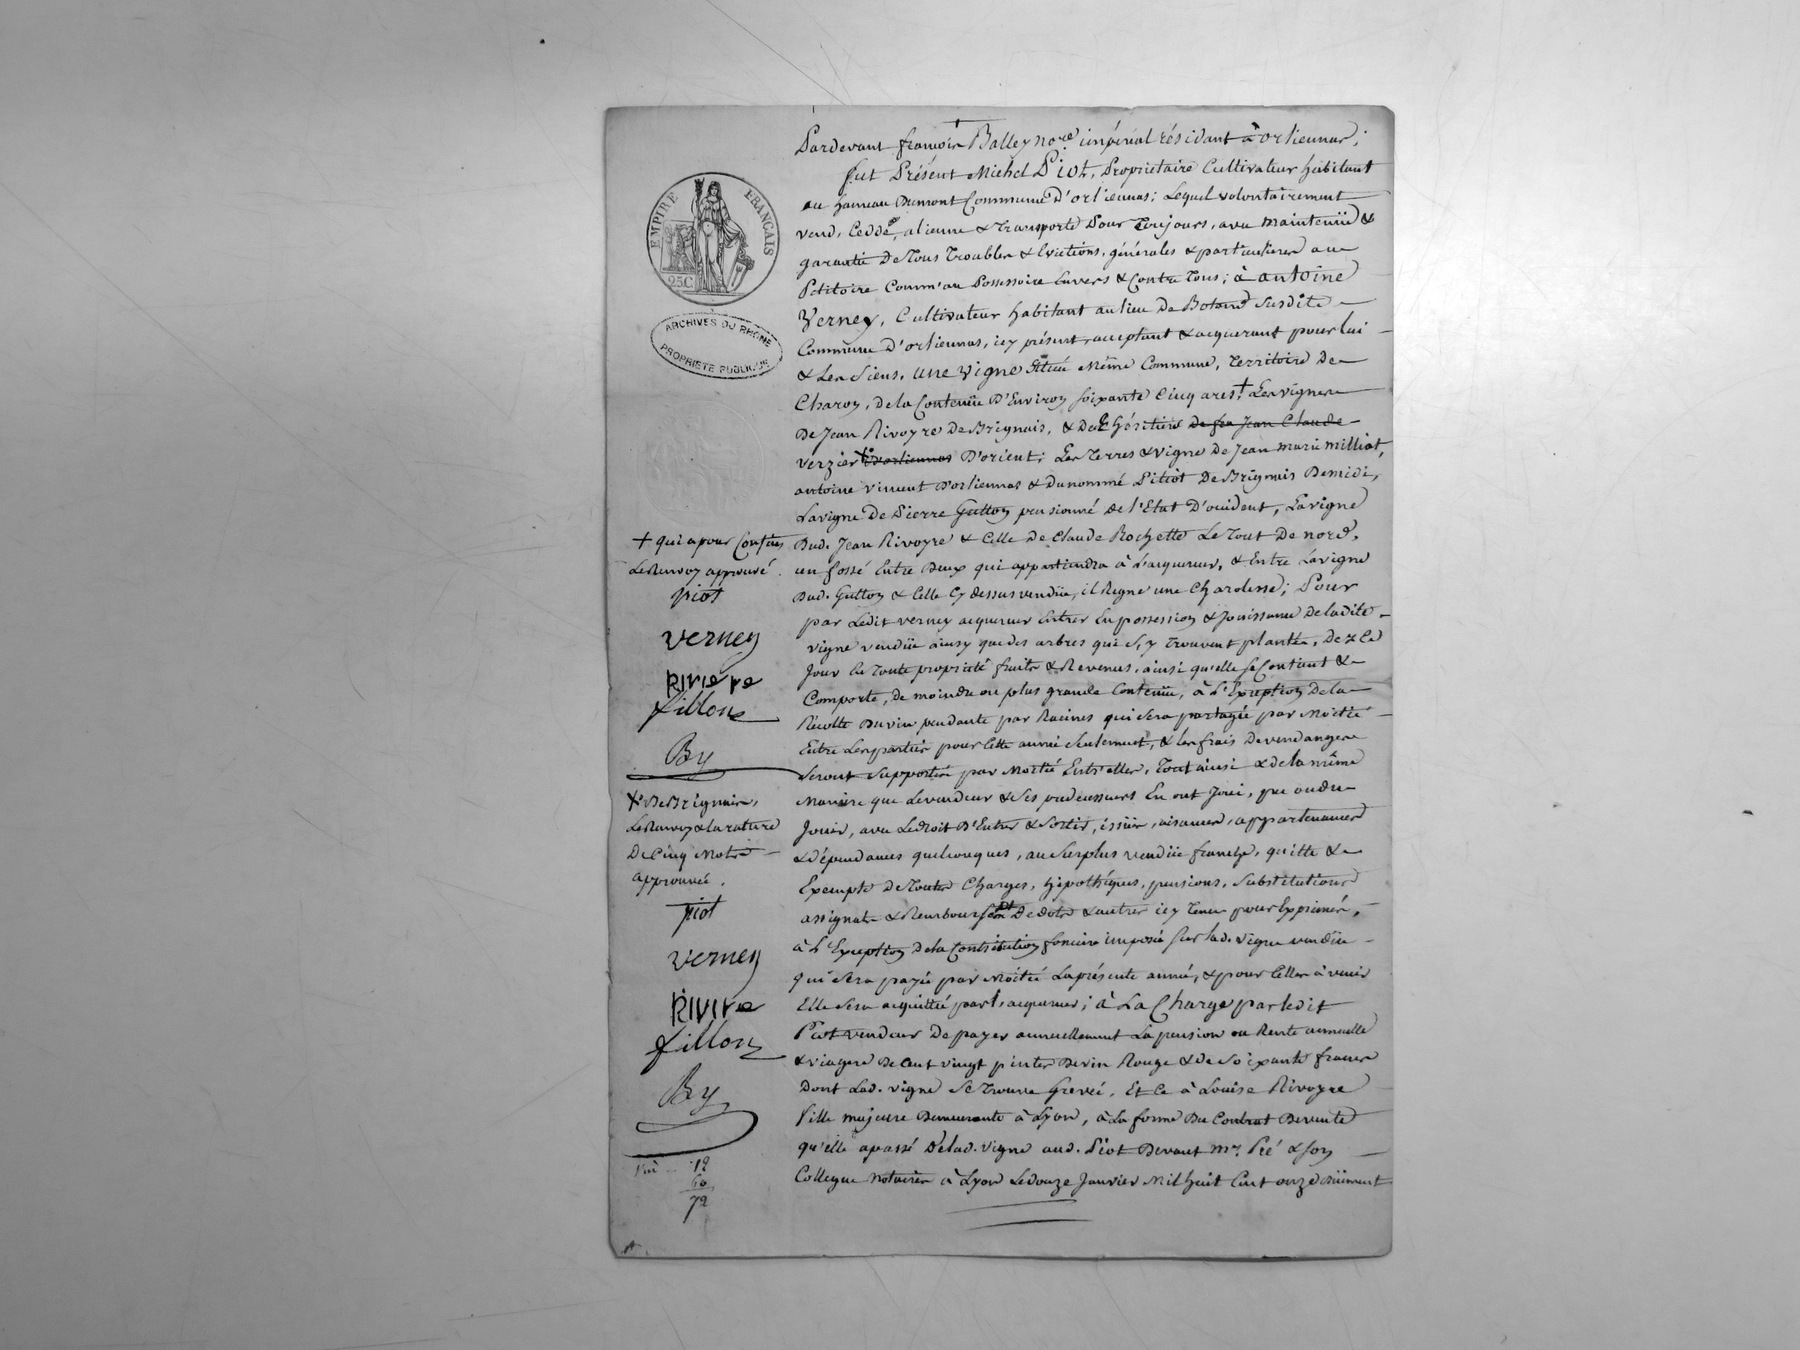 Pardevant françois Balley nore impérial résidant à orliennas;
fut Présent Michel Piot, Proprietaire Cultivateur habitant
au hameau Dumont Commune D'orliennas; Lequel volontairement
vend, Cedde, alienne & transporte Pour Toujours, avec maintenüe &
garantie De Tous Troubles & Evictions, générales & particulieres au
Petitoire Comm'au Possessoire Envers & Contre Tous; à antoine
Verney, Cultivateur habitant au lieu De Boland Susdite
Commune d'orliennas, icy présent, acceptant & acquerant pour lui
& Les Siens, une vigne Située Même Commune, Territoire De
Charoy, de la Contenüe D'Environ soixante Cinq ares + Les vignes
De Jean Rivoyre De Brignais, & Des héritiers de feu Jean Claude
verzier D'orliennas D'orient; Les Terres & vigne De Jean marie milliat,
antoine vincent D'orliennas & Du nommé Pitiot De Brignais De midi,
La vigne De Pierre Gutton pensionné de l'Etat D'occident, La vigne
Dud. Jean Rivoyre & Celle De Claude Rochette Le Tout De nord,
un fossé Entre Deux qui appartiendra à L'acquereur, & Entre La vigne
Dud. Gutton & Celle Cy dessus vendüe, il Regne une Charolesse; Pour
par Ledit verney acquereur Entrer En possession & Jouissance De ladite
vigne vendüe ainsy que des arbres qui s'y Trouvent plantés, de ce
Jour En Toute propriété fruits & Revenus, ainsi qu'elle se Contient &
Comporte, de moindre ou plus grande Contenüe, à L'Exception De la
Récolte Du vin pendante par Racines qui sera partagée par Moitié
Entre Les parties pour cette année Seulement, & les frais De vendanges
Seront Supportés par Moitié Entr'elles, Tout ainsi & de la même
Maniere que Le vendeur & Ses prédecesseurs En ont Joui, pu ou dû
Jouir, avec Le Droit D'Entrer & Sortir, issüe, aisances, appartenances
& dépendances quelconques, au Surplus vendüe franche, quitte &
Exempte De Toutes Charges, hipothéques, pensions, Substitutions
assignats & Remboursemt De dots & autres icy Tenus pour Exprimés,
à L'Exception De la Contribution fonciere imposée sur lad. vigne vendüe
qui Sera payée par Moitié La présente année, & pour Celles à venir
Elle Sera acquittée par L'acquereur; à La Charge par ledit
Piot vendeur De payer annuellement La pension ou Rente annuelle
& viagere De Cent vingt pintes De vin Rouge & De Soixante francs
Dont Lad. vigne Se Trouve Grevée, Et Ce à Louise Rivoyre
fille majeure Demeurante à Lyon, à La forme Du Contrat De vente
qu'elle a passé De lad. vigne aud. Piot Devant Me. Pré & Son
Collegue notaires à Lyon Le Douze Janvier Mil huit Cent onze dûment
EMPIRE FRANÇAIS
25C
ARCHIVES DU RHÔNE
PROPRIÉTÉ PUBLIQUE
+ qui a pour Confins
Le Renvoy approuvé
piot
verney
Riviere
fillon
By
+ De Brignais,
Le Renvoy & la rature
De Cinq Mots
approuvés.
piot
verney
Rivire
fillon
By
12
60
72